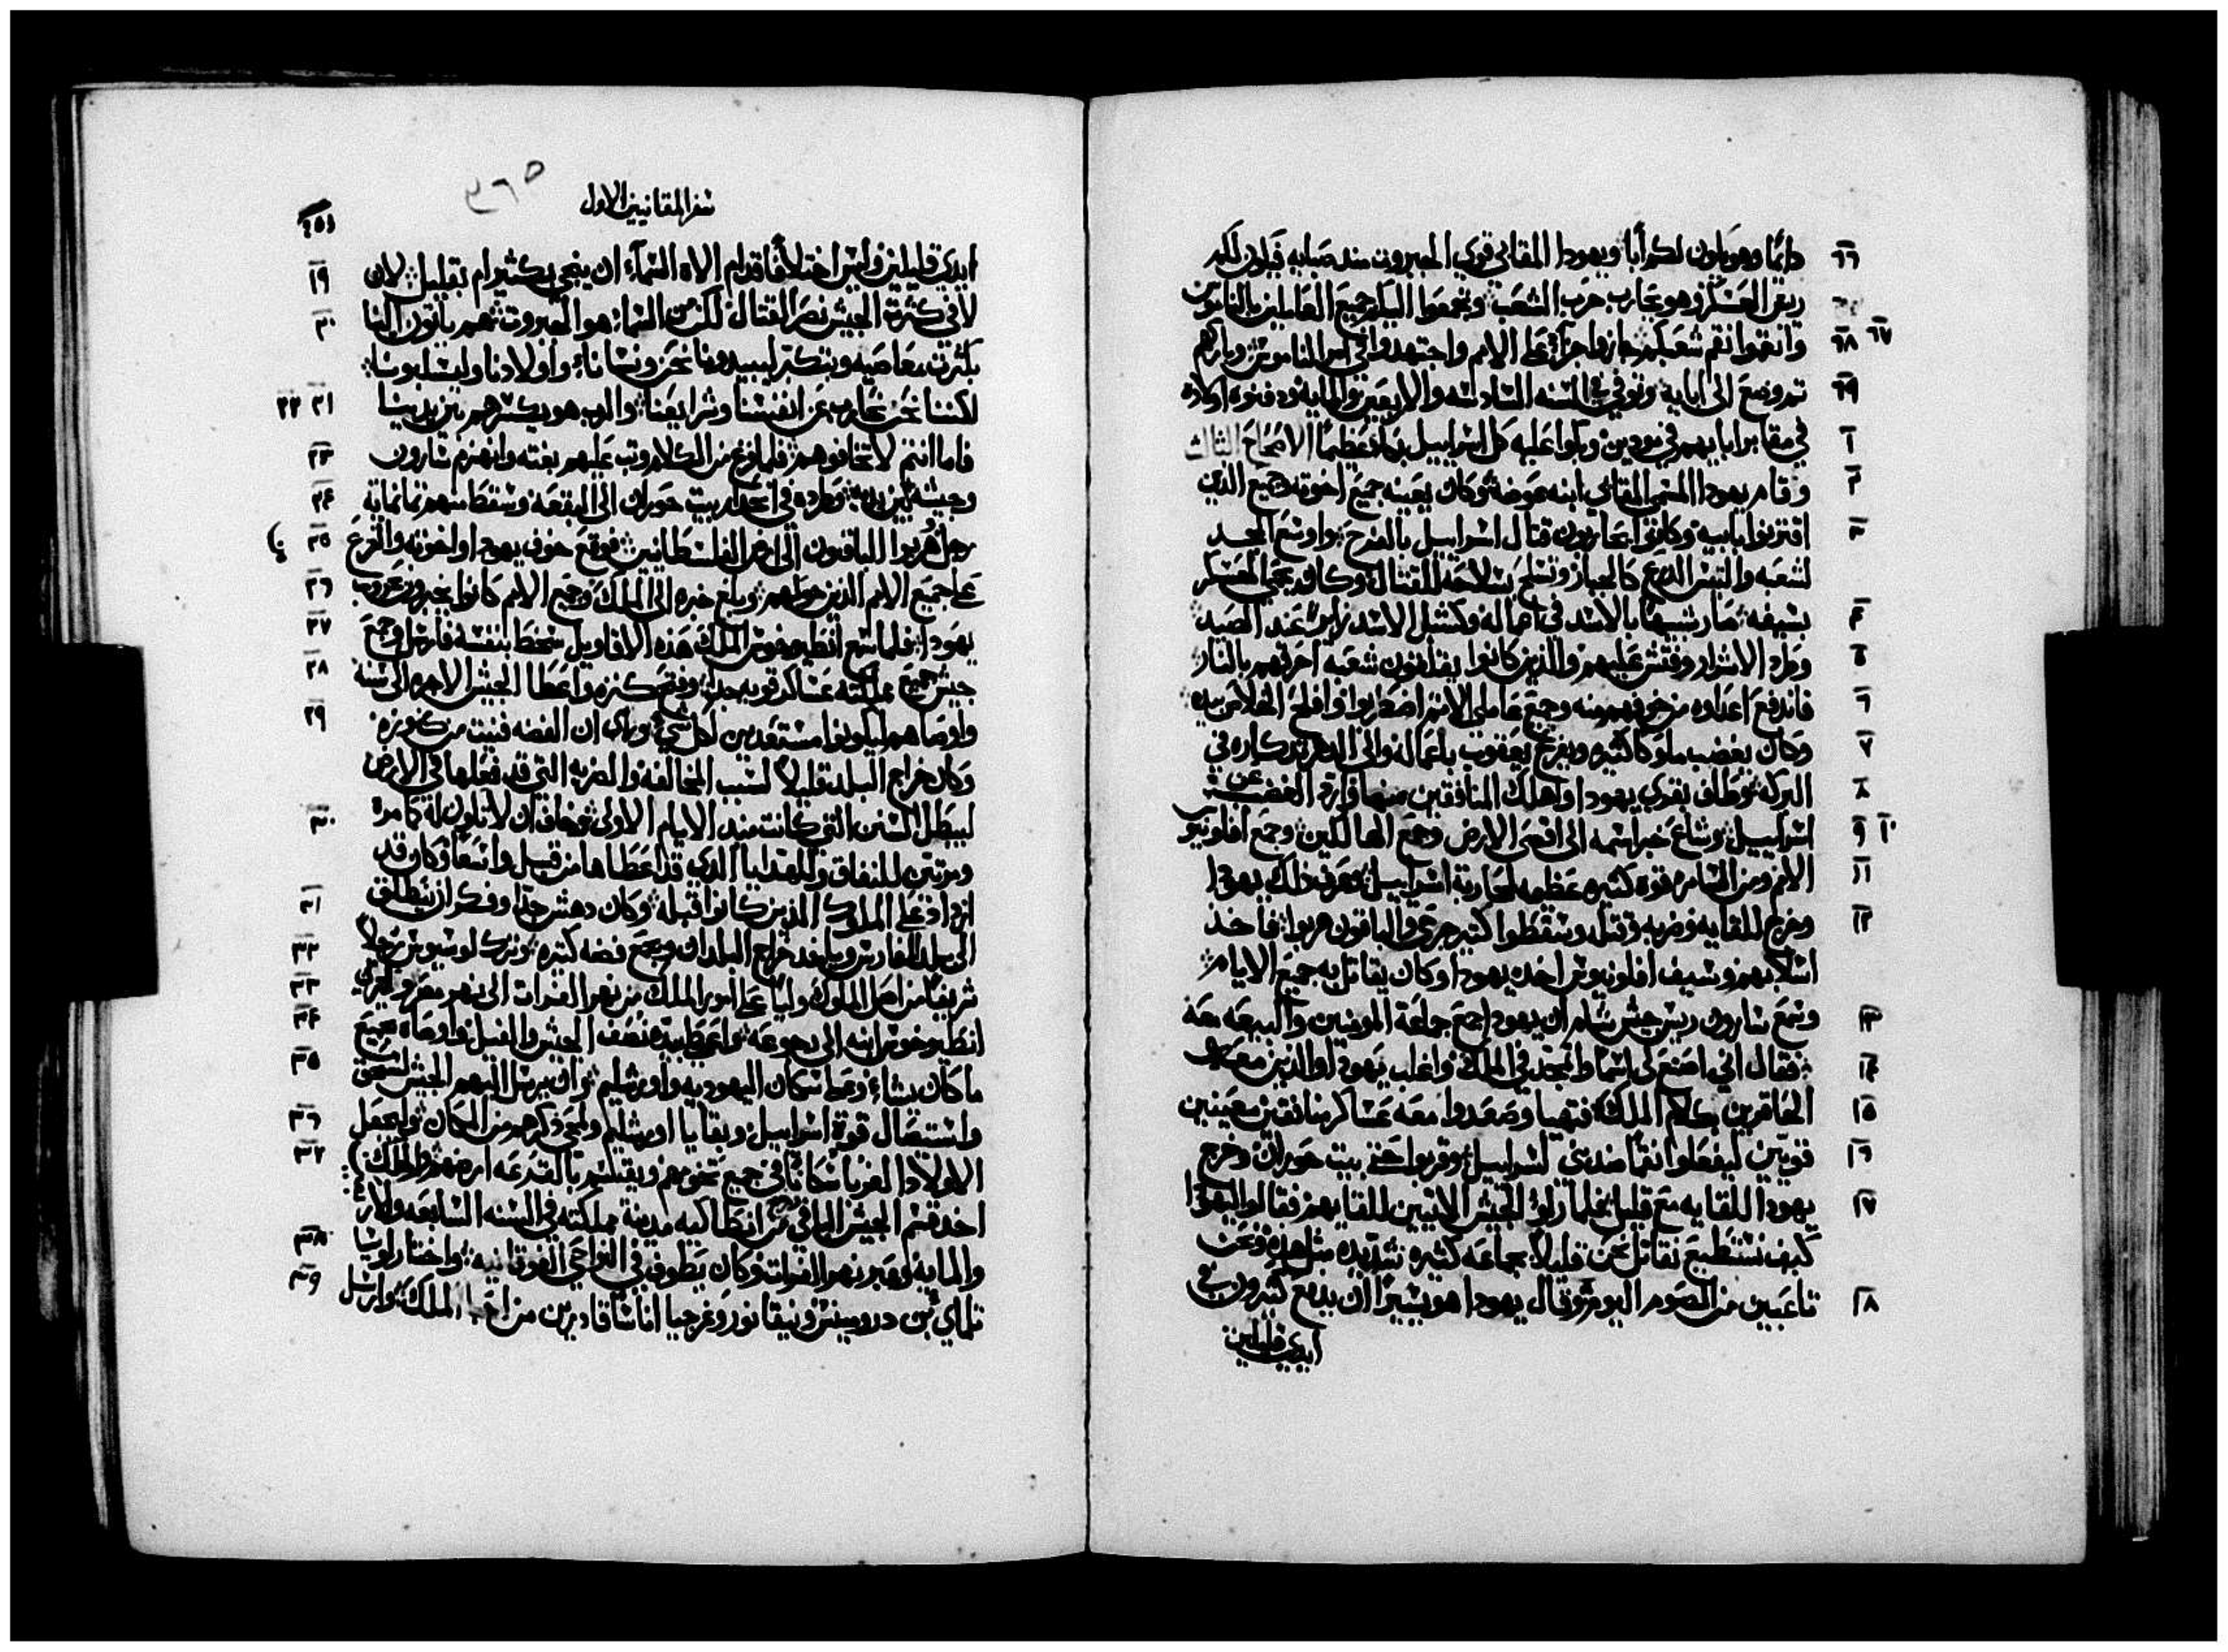 ٦٦ دائما وهو يكون لكم أبا ويهودا المقاني قوي الجبروت منذ صبايه فيكون لكم
ريس العسكر وهو يحارب حرب الشعب وتجمعوا اليكم جميع العاملين بالناموس
٦٧ ٦٨ وانقموا نقم شعبكم جازوا جزاء على الامم واجتهدوا في امر الناموس وباركهم
٦٩ ثم وضع الى ابايه وتوفي في السنه السادسه والاربعين والمايه ودفنوه اولاده
١ في مقابر ابايهم في مودين وبكوا عليه كل اسراييل بكاء عظيما الاصحاح الثالث
٢ وقام يهودا المسمى المقابي ابنه عوضه وكان يعينه جميع اخوته وجميع الذين
٣ اقترنوا بابيه وكانوا يحاربون قتال اسراييل بالفرح واوسع المجد
لشعبه والتبس الدرع كالجبار وتسلح بسلاحه للقتال وكان يحمي العسكر
٤ بسيفه صار شبيها بالاسد في اعماله وكشبل الاسد زاير عند الصيد
٥ وطرد الاشرار وفتش عليهم والذين كانوا يقلقون شعبه احرقهم بالنار
٦ فاندفع اعداوه من خوفهم منه وجميع عاملي الاثم اضطربوا وافلح الخلاص بيده
٧ وكان يغضب ملوكا كثيره ويفرح يعقوب باعماله والى الدهر تذكاره في
٨ البركه وطاف بقري يهودا واهلك المنافقين منها وازد الغضب عن
٩ ١٠ اسراييل وشاع خبر اسمه الى اقصى الارض وجمع الهالكين وجمع افلونيوس
١١ الامم ومن السامره قوه كثيره عظيمه لمحاربة اسراييل فعرف ذلك يهودا
١٢ وخرج للقايه وضربه وقتله وسقطوا كثير جرحى والباقون هربوا فاخذ
اسلابهم وسيف افلونيوس اخذه يهودا وكان يقاتل به جميع الايام
١٣ وسمع سارون ريس جيش شام ان يهودا جمع جماعة المومنين والبيعه معه
١٤ فقال اني اصنع لي اسما واتمجد في الملك واغلب يهودا والذين معه
١٥ الحاقرين بكلام الملك فتهيا وصعدوا معه عساكر منافقين معينين
١٦ قويين ليفعلوا نقما من بني اسراييل وقربوا حتى بيت حوران وخرج
١٧ يهودا للقايه مع قليل فلما راوا الجيش الاتيين للقايهم فقالوا ليهودا
كيف نستطيع نقاتل نحن قليلا بجماعه كثيره شديده مثل هذه ونحن
١٨ تاعبين من الصوم اليوم وقال يهودا هو يسيرا ان يدفع كثيرون في
ايدي قليلين
٣٦٥
سفر المقانيين الاول
٢٥١
١٩ ايدي قليلين وليس اختلافا قدام الاه السماء ان ينجي بكثير ام بقليل لان
٢٠ لا في كثرة الجيش نصر القتال لكن من السماء هو الجبروت هم ياتون الينا
بكثرت معاصيه وبتكبر ليبيدونا نحن ونسانا واولادنا وليسلبونا
٢١ ٢٢ لكننا نحن نحارب عن انفسنا وشرايعنا والرب هو يكسرهم بين يدينا
٢٣ فاما انتم لا تخافوهم فلما فرغ من الكلام وثب عليهم بغته وانهزم سارون
٢٤ وجيشه بين يديه وطرده في انحدار بيت حوران الى البقعه وسقط منهم ثمانماية
٢٥ رجل هربوا الباقون الى ارض الفلسطانيين فوقع خوف يهودا واخوته والفزع
٢٦ على جميع الامم الذين حولهم وبلغ خبره الى الملك وجميع الامم كانوا يخبرون بحروب
٢٧ يهودا فلما سمع انطيوخوس الملك هذه الاقاويل سخط بنفسه فارسل وجمع
٢٨ جيش جميع مملكته عساكر قويه جدا وفتح كنزه واعطا الجيش الاجره الى سنه
٢٩ واوصاهم ليكونوا مستعدين لكل شي وراى ان الفضه فنيت من كنوزه
وكان خراج البلد قليلا لسبب المخالفه والضربه التي قد فعلها في الارض
٣٠ ليبطل السنن التي كانت منذ الايام الاولى وخاف ان لا تكون له كما مره
ومرتين للنفاق وللهدايا الذي قد اعطاها من قبل واسعا وكان قد
٣١ ازداد على الملوك الذين كانوا قبله وكان دهش جدا وفكر ان ينطلق
٣٢ الى بلد الفارس وياخذ خراج البلدان ويجمع فضه كثيره وترك لوسيوس رجلا
٣٣ شريفا من اصل الملوك وليا على امور الملك من نهر الفرات الى نهر مصر وليربي
٣٤ انطيوخوس ابنه الى رجوعه واعطى بيده نصف الجيش والفيل واوصاه بجميع
٣٥ ما كان يشاء وعلى سكان اليهوديه واورشليم وان يرسل اليهم الجيش لسحق
٣٦ واستيصال قوة اسراييل وبقايا اورشليم وليمحي ذكرهم من المكان وليجعل
٣٧ الاولاد الغربا سكانا في جميع تخومهم ويقتسم بالقرعه ارضهم والملك
اخذ قسم الجيش الباقي من انطاكيه مدينة مملكته في السنه السابعه والاربعين
٣٨ والمايه وعبر نهر الفرات وكان يطوف في النواحي الفوقانيه واختار لوسيا
٣٩ تلماي بن دروميس ونيقانور وغرجيا اناسا قادرين من احبا الملك وارسل